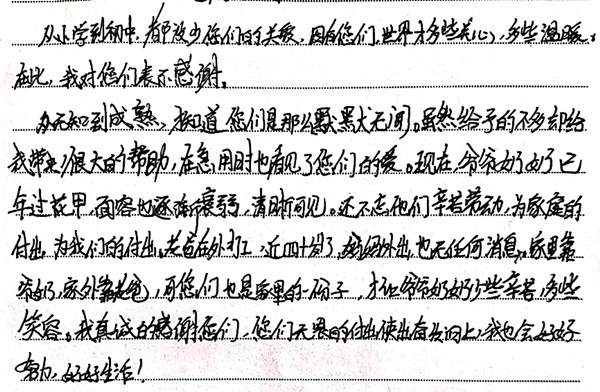 从小学到初中,都没少您们的关爱,因有您们,世界才多些关心,多些温暖。
在此,我对您们表示感谢。
从无知到成熟,才知道您们是那么默默无闻。虽然给予的不多却给
我带来了很大的帮助,在急用时也看见了您们的爱。现在,爷爷奶奶已
年过花甲,面容也逐渐衰弱,清晰可见。还不忘他们辛苦劳动,为家庭的
付出,为我们的付出。老爸在外打工,近四十岁了,妈妈外出,也无任何消息。家里靠
爷奶,家外靠老爸,可您们也是家里的一份子,才让爷爷奶奶少些辛苦,多些
笑容。我真诚的感谢您们,您们无畏的付出使出奋发向上,我也会好好
努力,好好生活!